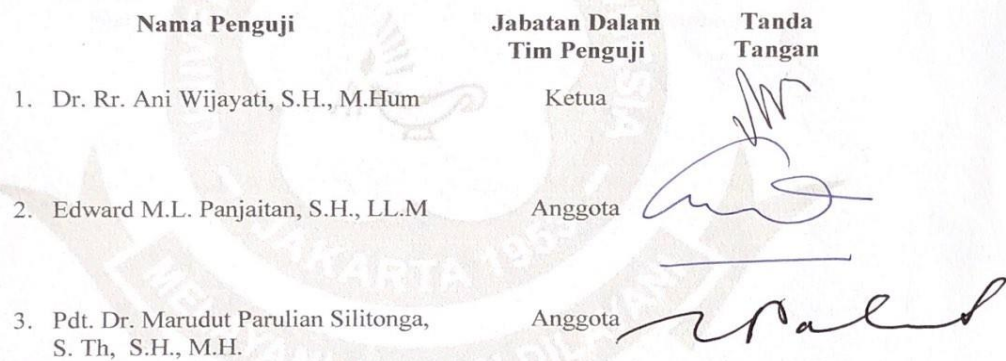 Nama Penguji Jabatan Dalam Tanda
Tim Penguji Tangan
1. Dr. Rr. Ani Wijayati, S.H., M.Hum Ketua
2. Edward M.L. Panjaitan, S.H., LL.M Anggota
3. Pdt. Dr. Marudut Parulian Silitonga, Anggota
S. Th, S.H., M.H.
JAKARTA 1953